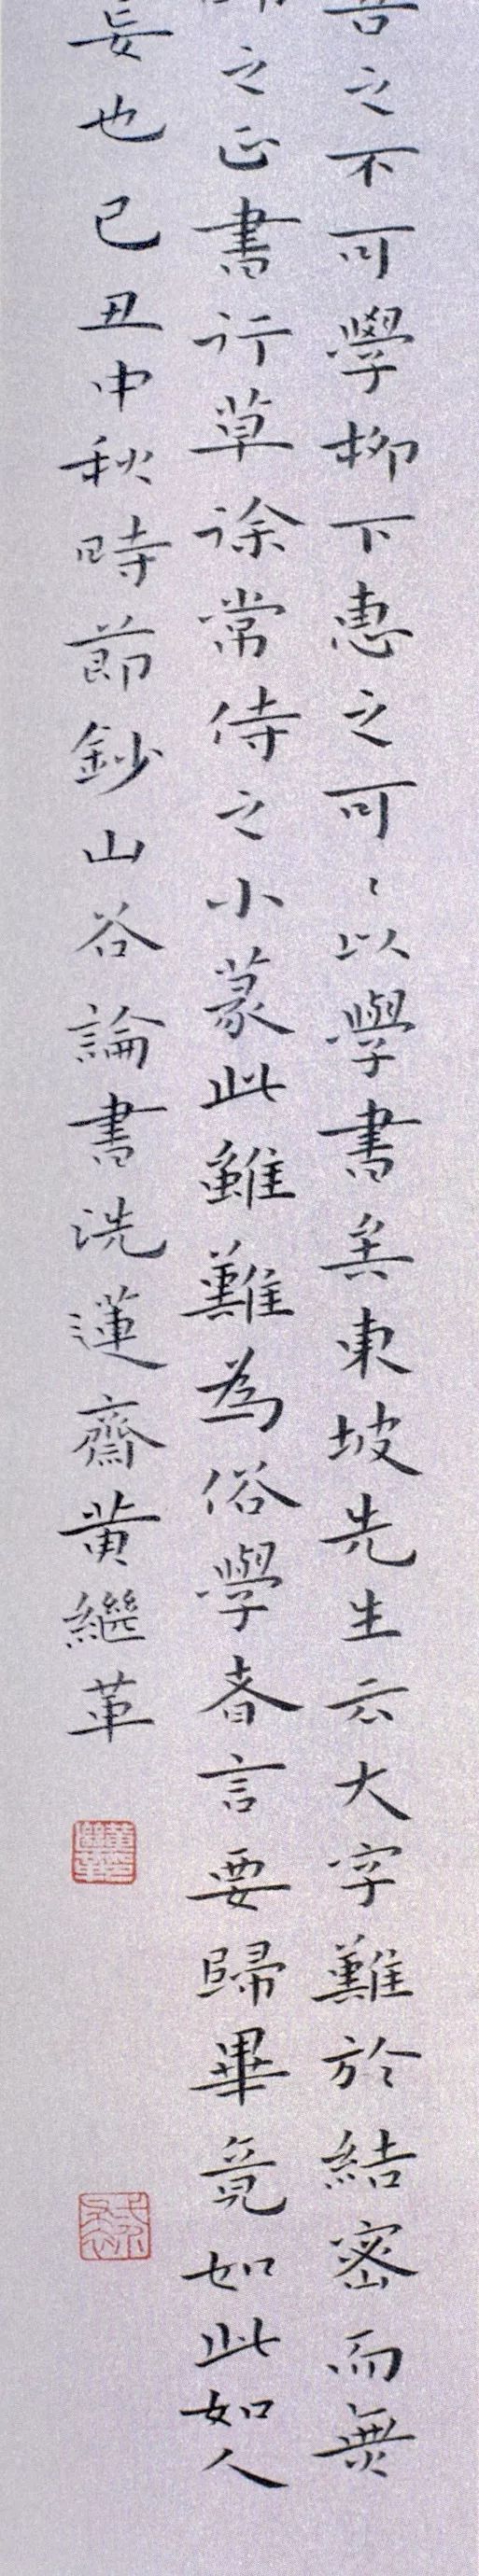 吾之不可學柳下惠之可〻以學書矣東坡先生云大字難於結密而無
師之正書行草徐常侍之小篆此雖難為俗學者言要歸畢竟如此如人
妄也己丑中秋時節鈔山谷論書洗蓮齋黄繼革